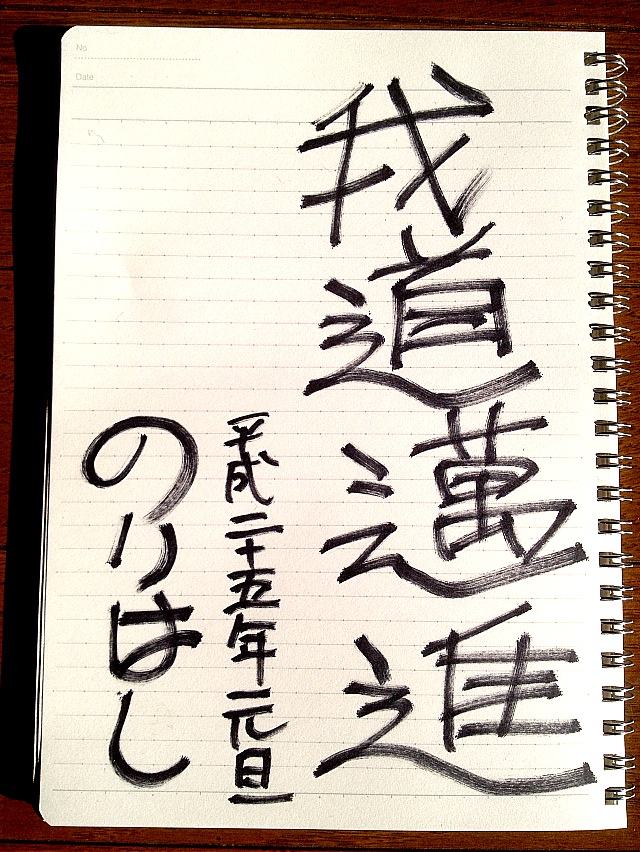 No
Date
我道邁進
平成二十五年元旦
のりはし